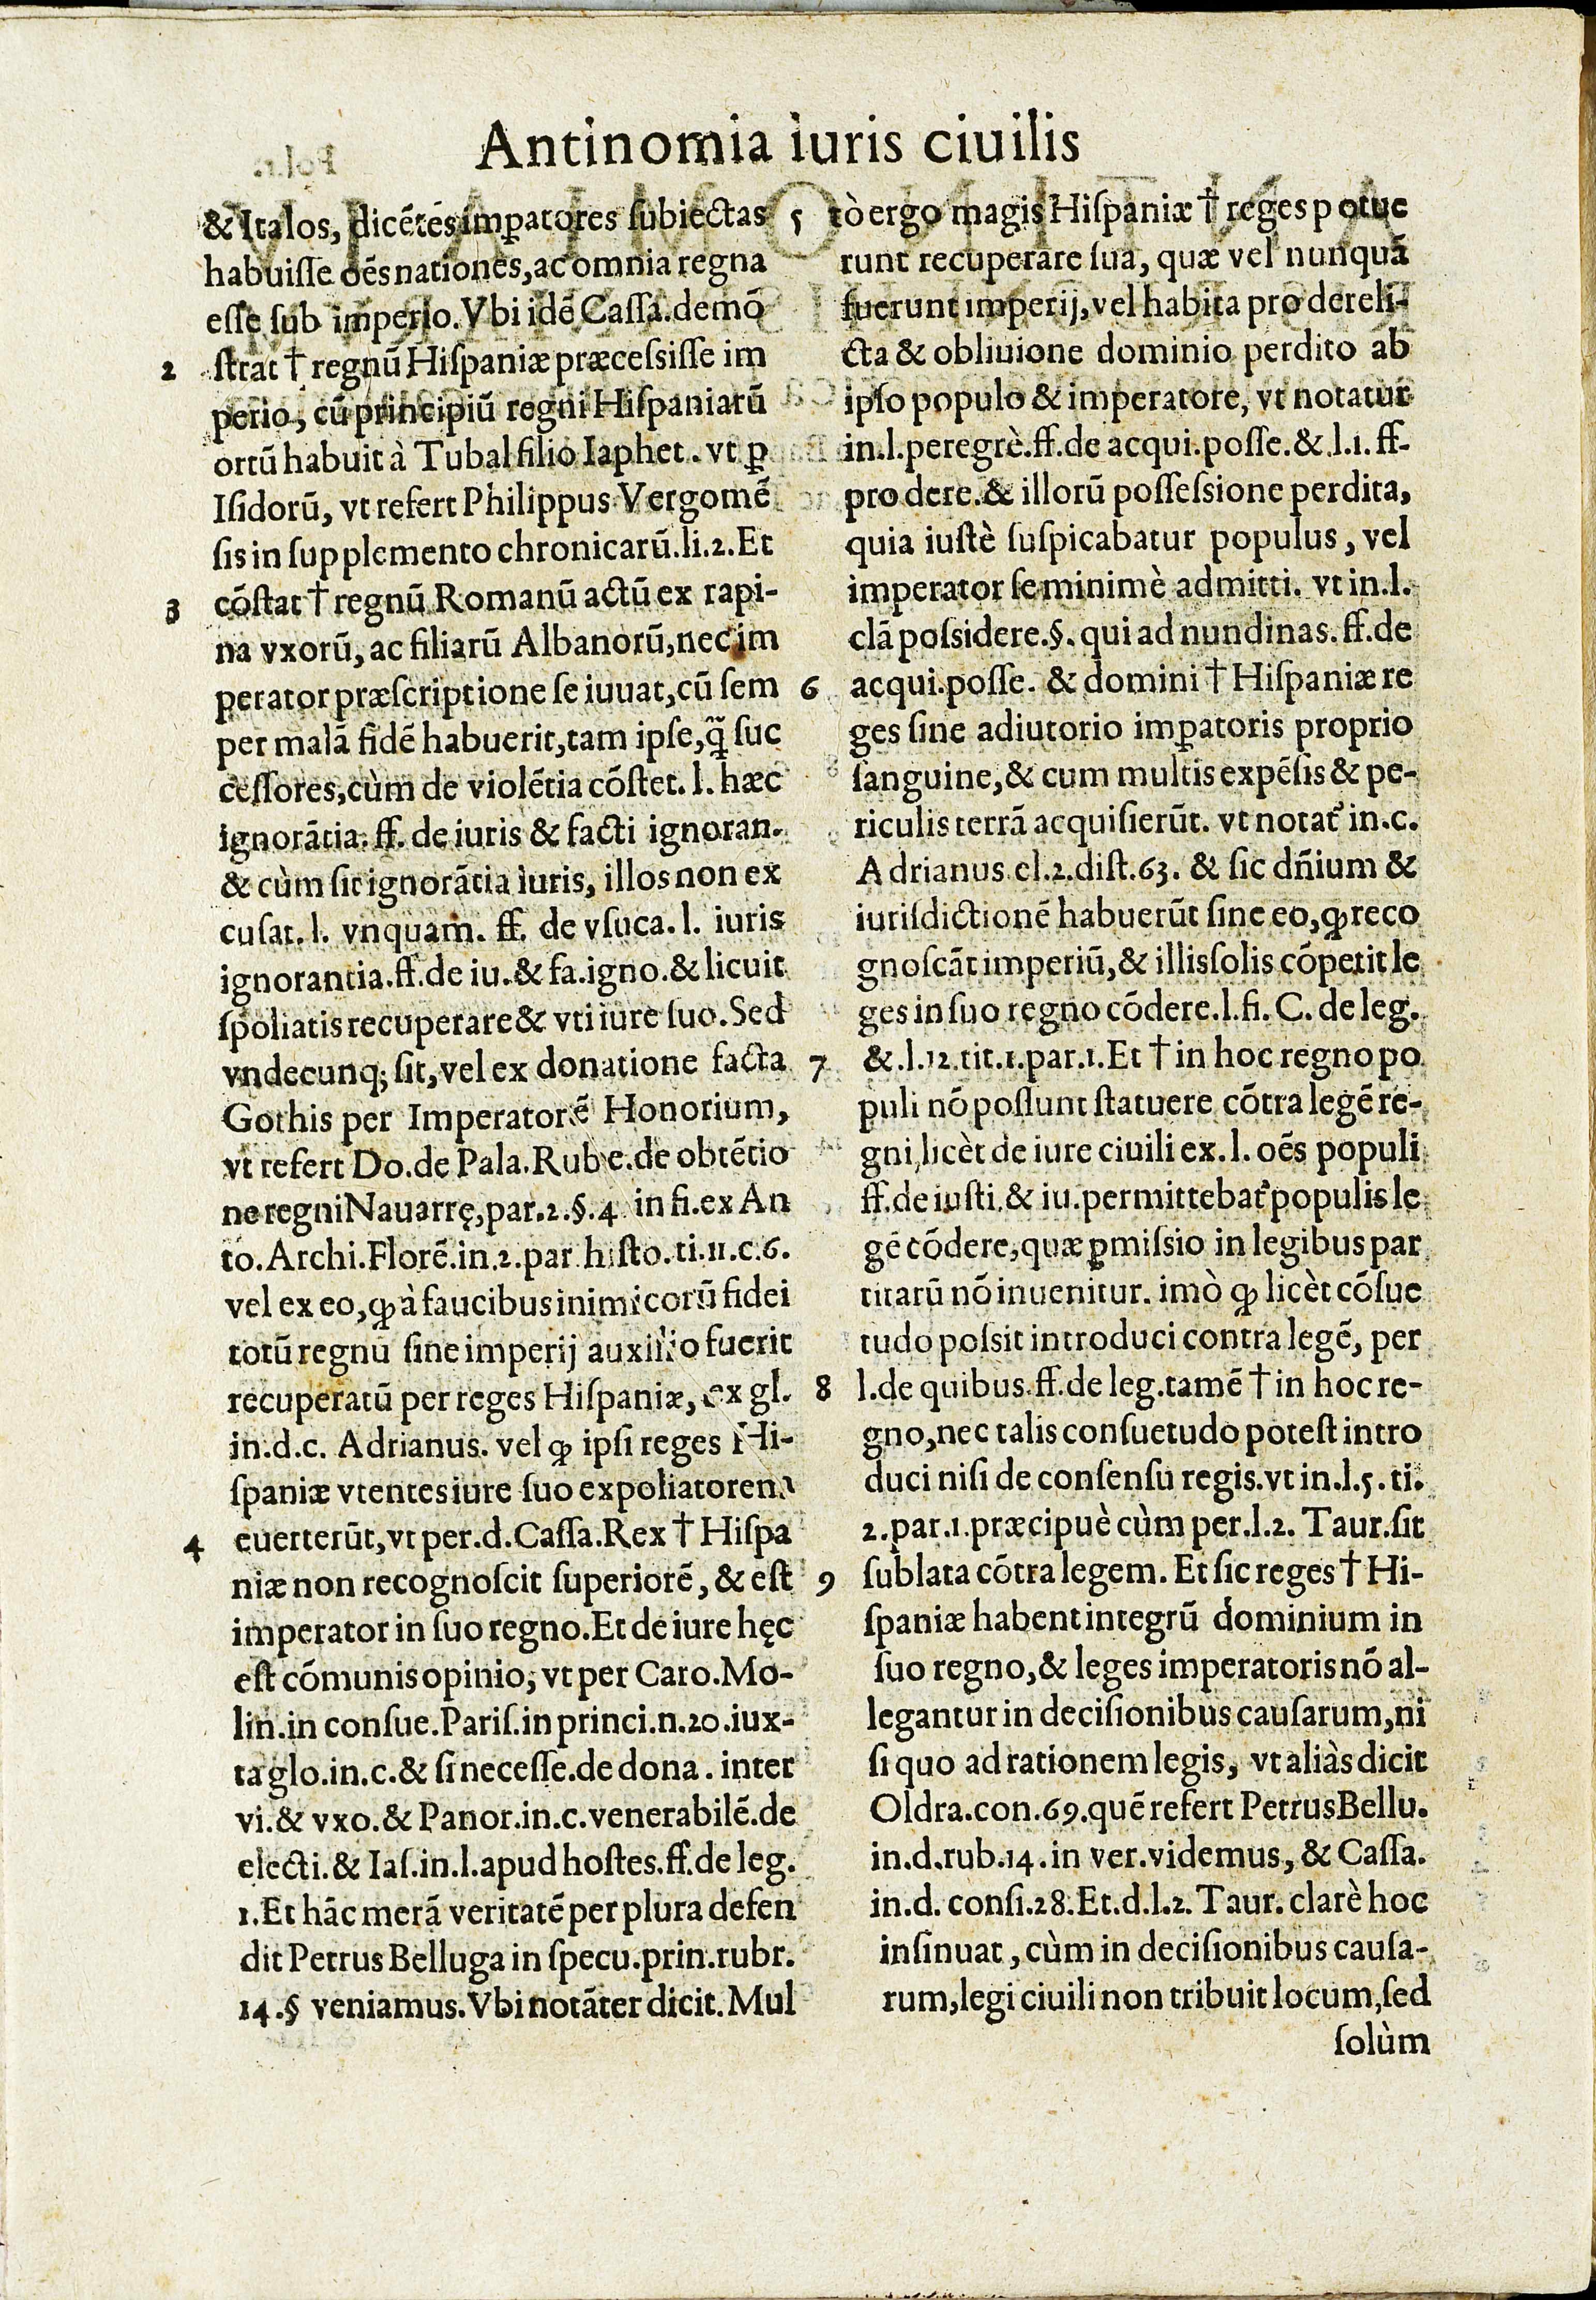 Antinomia iuris ciuilis
& Italos, dicẽtes imꝑatores ſubiectas
habuiſſe oẽs nationes, ac omnia regna
eſſe ſub imperio. Vbi idẽ Caſſa. demõ
2 ſtrat † regnũ Hiſpaniæ præceſsiſſe im
perio, cũ principiũ regni Hiſpaniarũ
ortũ habuit à Tubal filio Iaphet. vt ꝑ
Iſidorũ, vt refert Philippus Vergomẽ
ſis in ſupplemento chronicarũ. li. 2. Et
3 cõſtat † regnũ Romanũ actũ ex rapi-
na vxorũ, ac filiarũ Albanorũ, nec im
perator præſcriptione ſe iuuat, cũ ſem
per malã fidẽ habuerit, tam ipſe, q̃ ſuc
ceſſores, cùm de violẽtia cõſtet. l. hæc
ignorãtia. ff. de iuris & facti ignoran.
& cùm ſit ignorãtia iuris, illos non ex
cuſat. l. vnquam. ff. de vſuca. l. iuris
ignorantia. ff. de iu. & fa. igno. & licuit
ſpoliatis recuperare & vti iure ſuo. Sed
vndecunq; ſit, vel ex donatione facta
Gothis per Imperatorẽ Honorium,
vt refert Do. de Pala. Rub e. de obtẽtio
ne regni Nauarrę, par. 2. §. 4 in fi. ex An
to. Archi. Florẽ. in. 2. par histo. ti. 11. c. 6.
vel ex eo, ꝙ à faucibus inimicorũ fidei
totũ regnũ ſine imperij auxilio fuerit
recuperatũ per reges Hiſpaniæ, ex gl.
in. d. c. Adrianus. vel ꝙ ipſi reges Hi-
ſpaniæ vtentes iure ſuo expoliatorem
4 euerterũt, vt per. d. Caſſa. Rex † Hiſpa
niæ non recognoſcit ſuperiorẽ, & eſt
imperator in ſuo regno. Et de iure hęc
eſt cõmunis opinio, vt per Caro. Mo-
lin. in conſue. Pariſ. in princi. n. 20. iux-
ta glo. in. c. & ſi neceſſe. de dona. inter
vi. & vxo. & Panor. in. c. venerabilẽ. de
electi. & Iaſ. in. l. apud hoſtes. ff. de leg.
1. Et hãc merã veritatẽ per plura defen
dit Petrus Belluga in ſpecu. prin. rubr.
14. § veniamus. Vbi notãter dicit. Mul
5 tò ergo magis Hiſpaniæ † reges potue
runt recuperare ſua, quæ vel nunquã
fuerunt imperij, vel habita pro dereli-
cta & obliuione dominio perdito ab
ipſo populo & imperatore, vt notatur
in. l. peregrè. ff. de acqui. poſſe. & .l. 1. ff.
pro dere. & illorũ poſſeſsione perdita,
quia iuſtè ſuſpicabatur populus, vel
imperator ſe minimè admitti. vt in. l.
clã poſsidere. §. qui ad nundinas. ff. de
6 acqui. poſſe. & domini † Hiſpaniæ re
ges ſine adiutorio imꝑatoris proprio
ſanguine, & cum multis expẽſis & pe-
riculis terrã acquiſierũt. vt notat᷑ in. c.
Adrianus el. 2. diſt. 63. & ſic dñium &
iuriſdictionẽ habuerũt ſine eo, ꝙ reco
gnoſcãt imperiũ, & illis ſolis cõpetit le
ges in ſuo regno cõdere. l. fi. C. de leg.
7 & .l. 12. tit. 1. par. 1. Et † in hoc regno po
puli nõ poſſunt ſtatuere cõtra legẽ re-
gni, licèt de iure ciuili ex. l. oẽs populi
ff. de iuſti. & iu. permittebat᷑ populis le
gẽ cõdere, quæ ꝑmiſsio in legibus par
titarũ nõ inuenitur. imò ꝙ licèt cõſue
tudo poſsit introduci contra legẽ, per
8 l. de quibus. ff. de leg. tamẽ † in hoc re-
gno, nec talis conſuetudo poteſt intro
duci niſi de conſenſu regis. vt in. l. 5. ti.
2. par. 1. præcipuè cùm per. l. 2. Taur. ſit
9 ſublata cõtra legem. Et ſic reges † Hi-
ſpaniæ habent integrũ dominium in
ſuo regno, & leges imperatoris nõ al-
legantur in deciſionibus cauſarum, ni
ſi quo ad rationem legis, vt aliàs dicit
Oldra. con. 69. quẽ refert Petrus Bellu.
in. d. rub. 14. in ver. videmus, & Caſſa.
in. d. conſi. 28. Et. d. l. 2. Taur. clarè hoc
inſinuat, cùm in deciſionibus cauſa-
rum, legi ciuili non tribuit locum, ſed
ſolùm